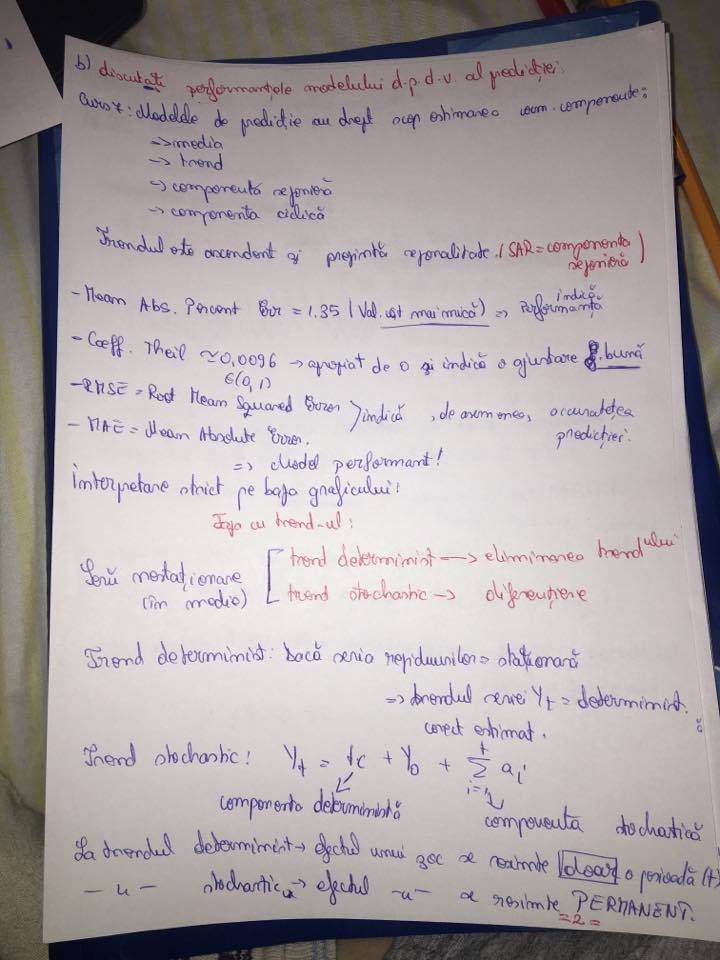 b) discutați performanțele modelului d.p.d.v. al predicției.
Curs 7: Modelele de predicție au drept scop estimarea urm. componente:
→ media
→ trend
→ componenta sezonieră
→ componenta ciclică
Trendul este ascendent și prezintă sezonalitate. (SAR = componenta
sezonieră)
- Mean Abs. Percent Err = 1.35 (Val. cât mai mică) => indică
performanță
- Coeff. Theil ≈ 0,0096 → apropiat de 0 și indică o ajustare f. bună
∈(0,1)
- RMSE = Root Mean Squared Error
- MAE = Mean Absolute Error.
> indică, de asemenea, acuratețea
predicției.
=> Model performant!
Interpretare strict pe baza graficului:
Faza cu trend-ul:
Serii nestaționare
(în medie)
trend determinist → eliminarea trendului
trend stochastic → diferențiere
Trend determinist: Dacă seria reziduurilor = staționară
=> trendul seriei Yt = determinist.
corect estimat.
Trend stochastic: Yt = tc + Y0 + t∑i=1 ai
componenta deterministă
componenta stochastică
La trendul determinist → efectul unui șoc se resimte doar o perioadă (t)
— u — stochastic → efectul —u— se resimte PERMANENT.
=2=